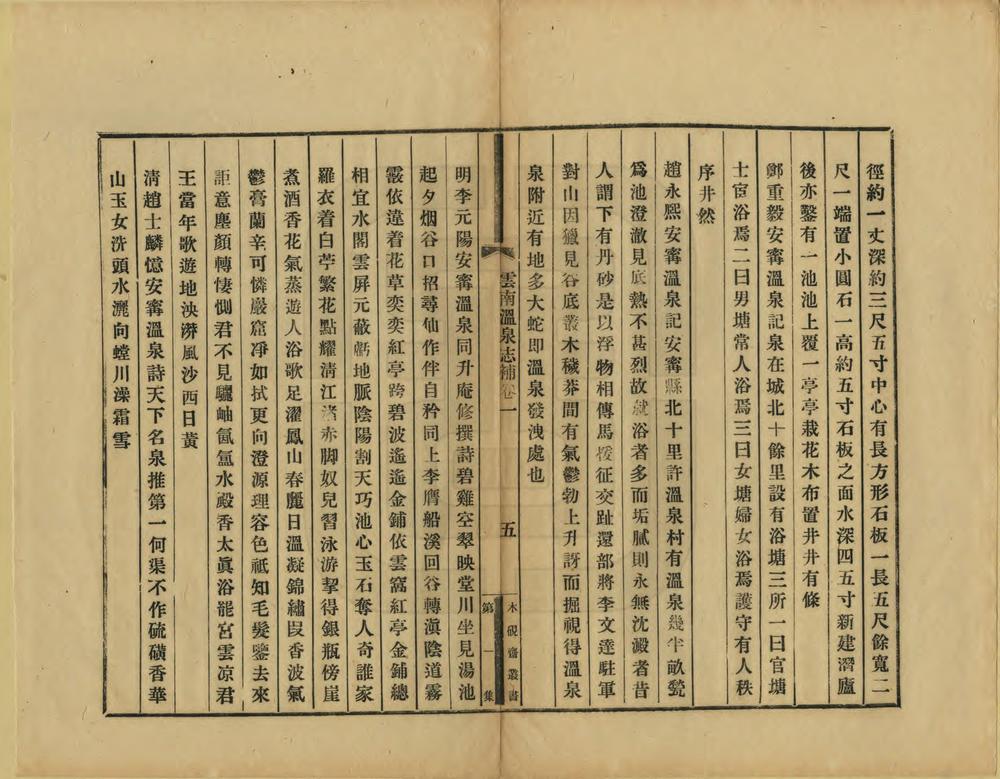 徑約一丈深約三尺五寸中心有長方形石板一長五尺餘寬二
尺一端置小圓石一高約五寸石板之面水深四五寸新建湢廬
後亦鑿有一池池上覆一亭亭栽花木布置井井有條
鄭重毅安寗溫泉記泉在城北十餘里設有浴塘三所一曰官塘
士宦浴焉二曰男塘常人浴焉三曰女塘婦女浴焉護守有人秩
序井然
趙永熙安寗溫泉記安寗縣北十里許溫泉村有溫泉幾半畝甃
爲池澄澈見底熱不甚烈故就浴者多而垢膩則永無沈澱者昔
人謂下有丹砂是以浮物相傳馬援征交趾還部將李文達駐軍
對山因獵見谷底叢木穢莽間有氣鬱勃上升訝而掘視得溫泉
泉附近有地多大蛇卽溫泉發洩處也
雲南溫泉志補卷一
五
木硯齋叢書
第一集
明李元陽安寗溫泉同升庵修撰詩碧雞空翠映堂川坐見湯池
起夕烟谷口招尋仙作伴自矜同上李膺船溪回谷轉滇陰道霧
靄依違着花草奕奕紅亭跨碧波遙遙金鋪依雲窩紅亭金鋪總
相宜水閣雲屏元蔽虧地脈陰陽割天巧池心玉石奪人奇誰家
羅衣着白苧繁花點耀淸江渚赤脚奴兒習泳游挈得銀瓶傍崖
煮酒香花氣蒸遊人浴歌足濯鳳山春麗日溫凝錦繡叚香波氣
鬱膏蘭辛可憐巖窟凈如拭更向澄源理容色祇知毛髮鑒去來
詎意塵顏轉悽惻君不見驪岫氤氳水殿香太眞浴罷宮雲凉君
王當年歌遊地泱漭風沙西日黃
淸趙士麟憶安寗溫泉詩天下名泉推第一何渠不作硫磺香華
山玉女洗頭水灑向螳川澡霜雪